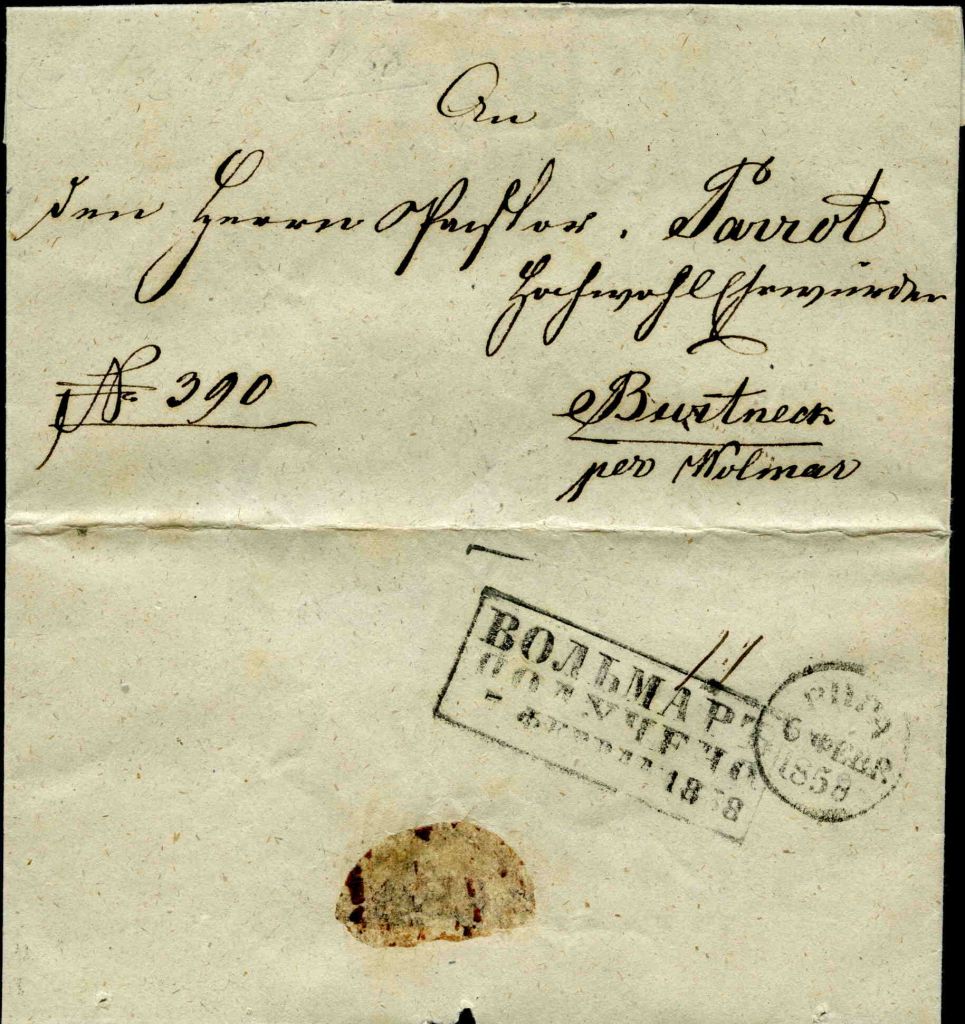 An
den Herrn Pastor. Parrot
HochwohlEhrwürden
№ 390
Burtneck
per Wolmar
11
ВОЛЬМАРЪ
ПОЛУЧЕНО
7 ФЕВРАЛ 1858
РИГА
6 ФЕВР.
1858